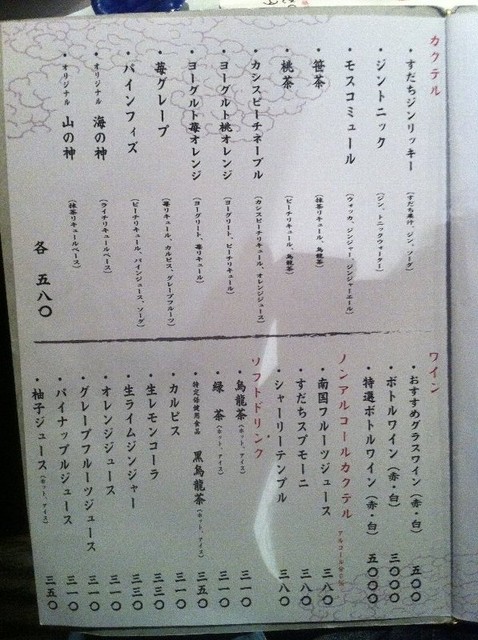 カクテル
・すだちジンリッキー (すだち果汁、ジン、ソーダ)
・ジントニック (ジン、トニックウォーター)
・モスコミュール (ウォッカ、ジンジャー、ジンジャーエール)
・笹茶 (抹茶リキュール、烏龍茶)
・桃茶 (ピーチリキュール、烏龍茶)
・カシスピーチネーブル (カシスピーチリキュール、オレンジジュース)
・ヨーグルト桃オレンジ (ヨーグリート、ピーチリキュール)
・ヨーグルト苺オレンジ (ヨーグリート、苺リキュール)
・苺グレープ (苺リキュール、カルピス、グレープフルーツ)
・パインフィズ (ピーチリキュール、パインジュース、ソーダ)
・オリジナル 海の神 (ライチリキュールベース)
・オリジナル 山の神 (抹茶リキュールベース)
各 五八〇
ワイン
・おすすめグラスワイン(赤・白) 五〇〇
・ボトルワイン(赤・白) 三〇〇〇
・特選ボトルワイン(赤・白) 五〇〇〇
ノンアルコールカクテル アルコール分0%
・南国フルーツジュース 三八〇
・すだちスプモーニ 三八〇
・シャーリーテンプル 三八〇
ソフトドリンク
・烏龍茶(ホット、アイス) 三一〇
・緑 茶(ホット、アイス) 三一〇
・特定保健用食品 黒烏龍茶(ホット、アイス) 三五〇
・カルピス 三一〇
・生レモンコーラ 三三〇
・生ライムジンジャー 三三〇
・オレンジジュース 三一〇
・グレープフルーツジュース 三一〇
・パイナップルジュース 三一〇
・柚子ジュース(ホット、アイス) 三五〇